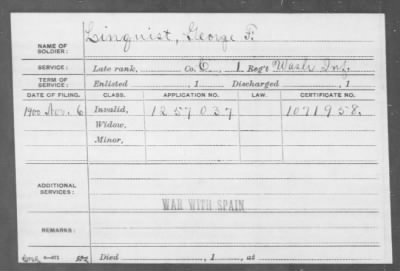 NAME OF SOLDIER: Linquist, George F.
SERVICE: Late rank, Co. C, 1 Reg't Wash Inf.
TERM OF SERVICE: Enlisted , 1 Discharged , 1
DATE OF FILING. CLASS. APPLICATION NO. LAW. CERTIFICATE NO.
1900 Nov. 6 Invalid, 1257037 1071958.
Widow,
Minor,
ADDITIONAL SERVICES:
WAR WITH SPAIN
REMARKS:
Died , 1 , at